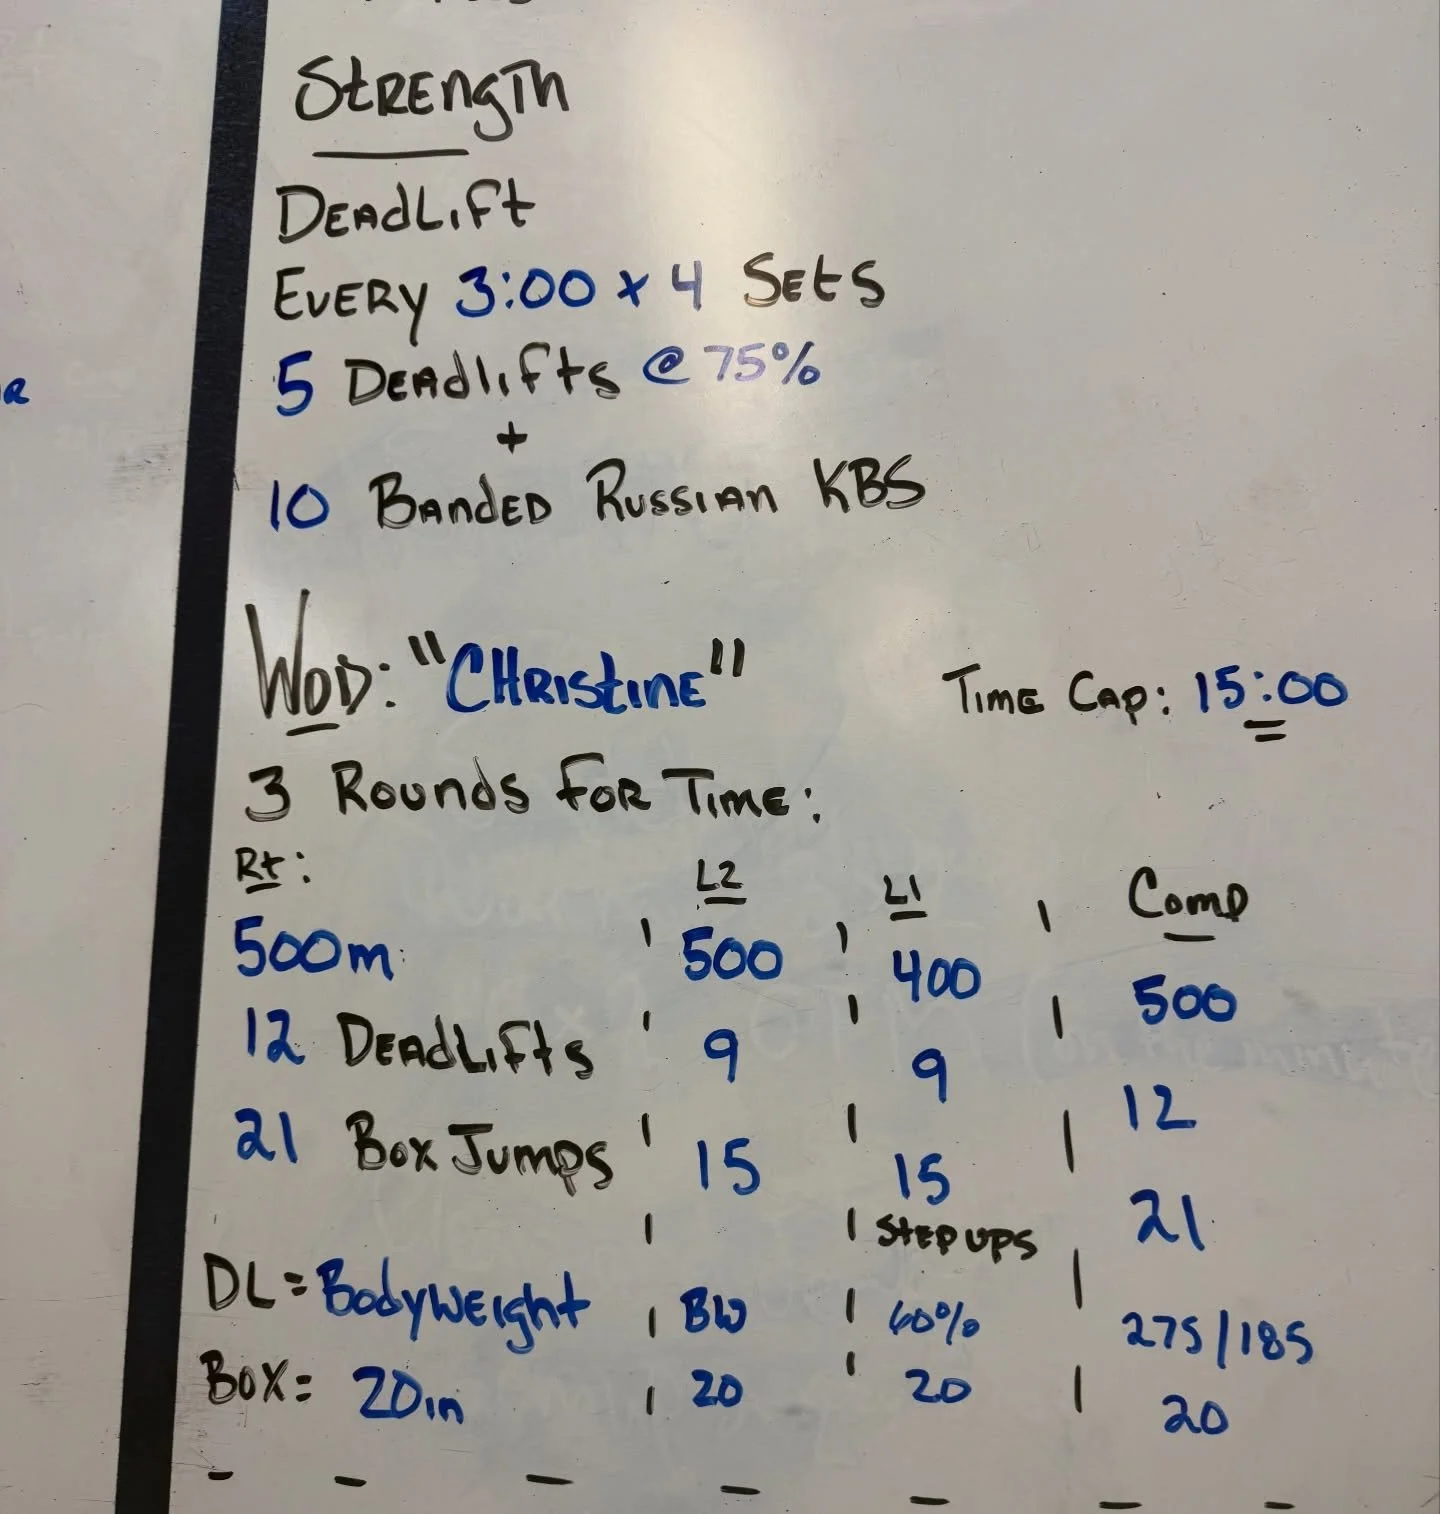 Strength
Deadlift
Every 3:00 x 4 Sets
5 Deadlifts @ 75%
+
10 Banded Russian KBS
WOD: "Christine"
Time Cap: 15:00
3 Rounds For Time:
Rx: L2 L1 Comp
500m 500 400 500
12 Deadlifts 9 9 12
21 Box Jumps 15 15 21
Step ups
DL = Bodyweight BW 60% 275/185
Box = 20in 20 20 20